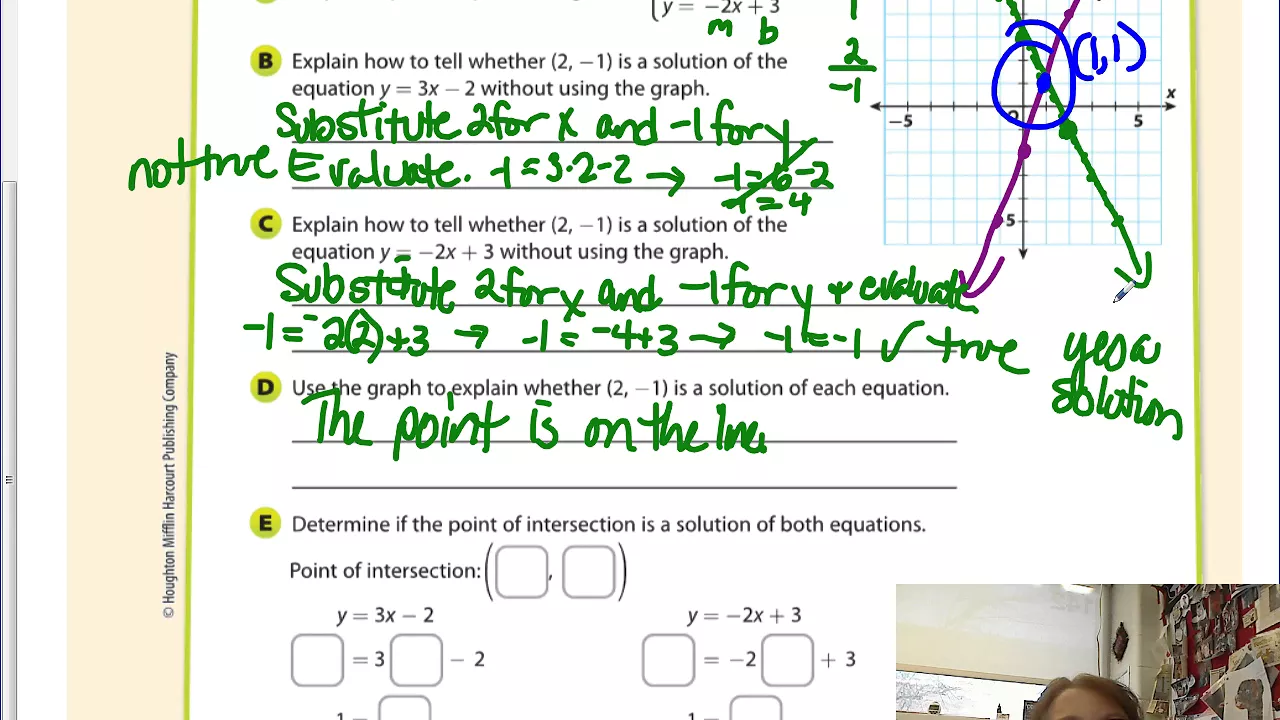 y = −2x + 3
m b
1
2
-1
(1,1)
x
−5
O
5
5
B Explain how to tell whether (2, −1) is a solution of the
equation y = 3x − 2 without using the graph.
Substitute 2 for x and -1 for y
not true Evaluate. -1=3·2-2 → -1=6-2
-1=4
C Explain how to tell whether (2, −1) is a solution of the
equation y = −2x + 3 without using the graph.
Substitute 2 for x and -1 for y + evaluate
-1 = -2(2)+3 → -1 = -4+3 → -1=-1 ✓ true yes a
solution
D Use the graph to explain whether (2, −1) is a solution of each equation.
The point is on the line.
E Determine if the point of intersection is a solution of both equations.
Point of intersection: ( , )
y = 3x − 2 y = −2x + 3
= 3 − 2 = −2 + 3
1 = 1 =
© Houghton Mifflin Harcourt Publishing Company